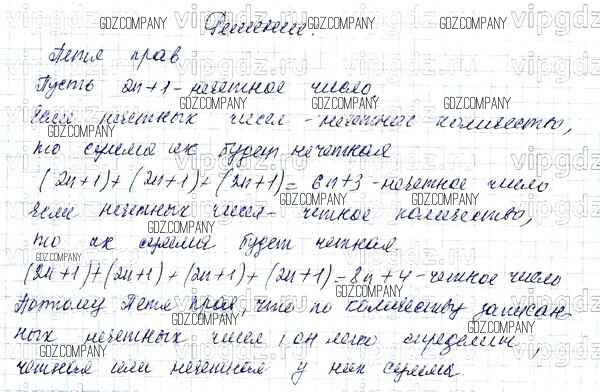 Решение.
Петя прав
Пусть 2n+1 - нечетное число
Если нечетных чисел - нечетное количество,
то сумма их будет нечетная
(2n+1)+(2n+1)+(2n+1)=6n+3 - нечетное число
Если нечетных чисел - четное количество,
то их сумма будет четная
(2n+1)+(2n+1)+(2n+1)+(2n+1)=8n+4 - четное число
Поэтому Петя прав, что по количеству записан-
ных нечетных чисел, он легко определит,
четная или нечетная у них сумма.
GDZ.COMPANY
vipgdz.ru